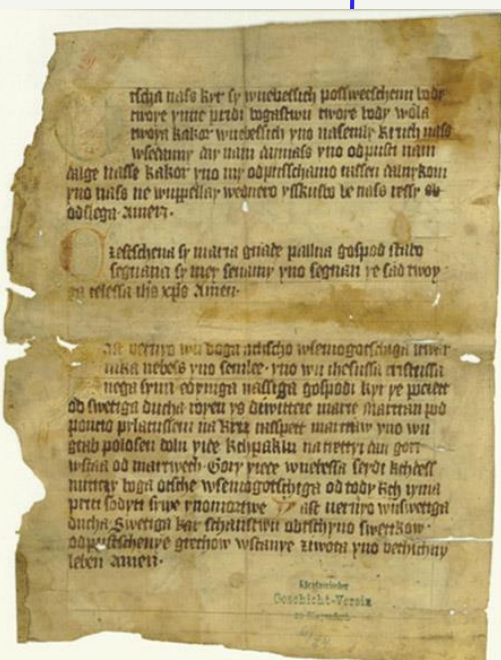 tscha nass kyr sy wnebessich posswetschenu body
twoye ymme pridi bogastwu twoye body wola
twoya kakor wnebessich yno nasemly kruch nass
wsedanny day nam dannass yno odpusti nam
dalge nasse kakor yno my odpusschamo nassen dalnykom
yno nass ne wuppellay wednero ysskusbo le nass ressy od
od slega Amen
Czestschena sy maria gnade pallna gospod stabo
segnana sy mey senamy yno segnan ye sad twoy
ga telessa ihs xps Amen
ast veruyo wu boga otscho wsemogotschiga stwar
nika nebess yno semlee yno wu ihesussa cristussa
nega synu edyniga nassiga gospodi kyr ye poczett
od swetiga ducha royen ys dewittcze marie martran pod
poncio pylatussem na kriz raspett martraw yno wu
grab polosen doln yide kchpaklu na trettyi dan gori
wstaa od martwech Gory yiede wnebessa sedi kchtess
nutzi boga otsche wsemogotschiga od tody kch yma
priti sodyti sywe ynomortwe ast veruyo wuswetiga
ducha Swetiga kar schanstwu obtschyno swetikow
odpustschenye grechow wstanye ziwota yno vetschny
leben Amen
Geschicht-Verein